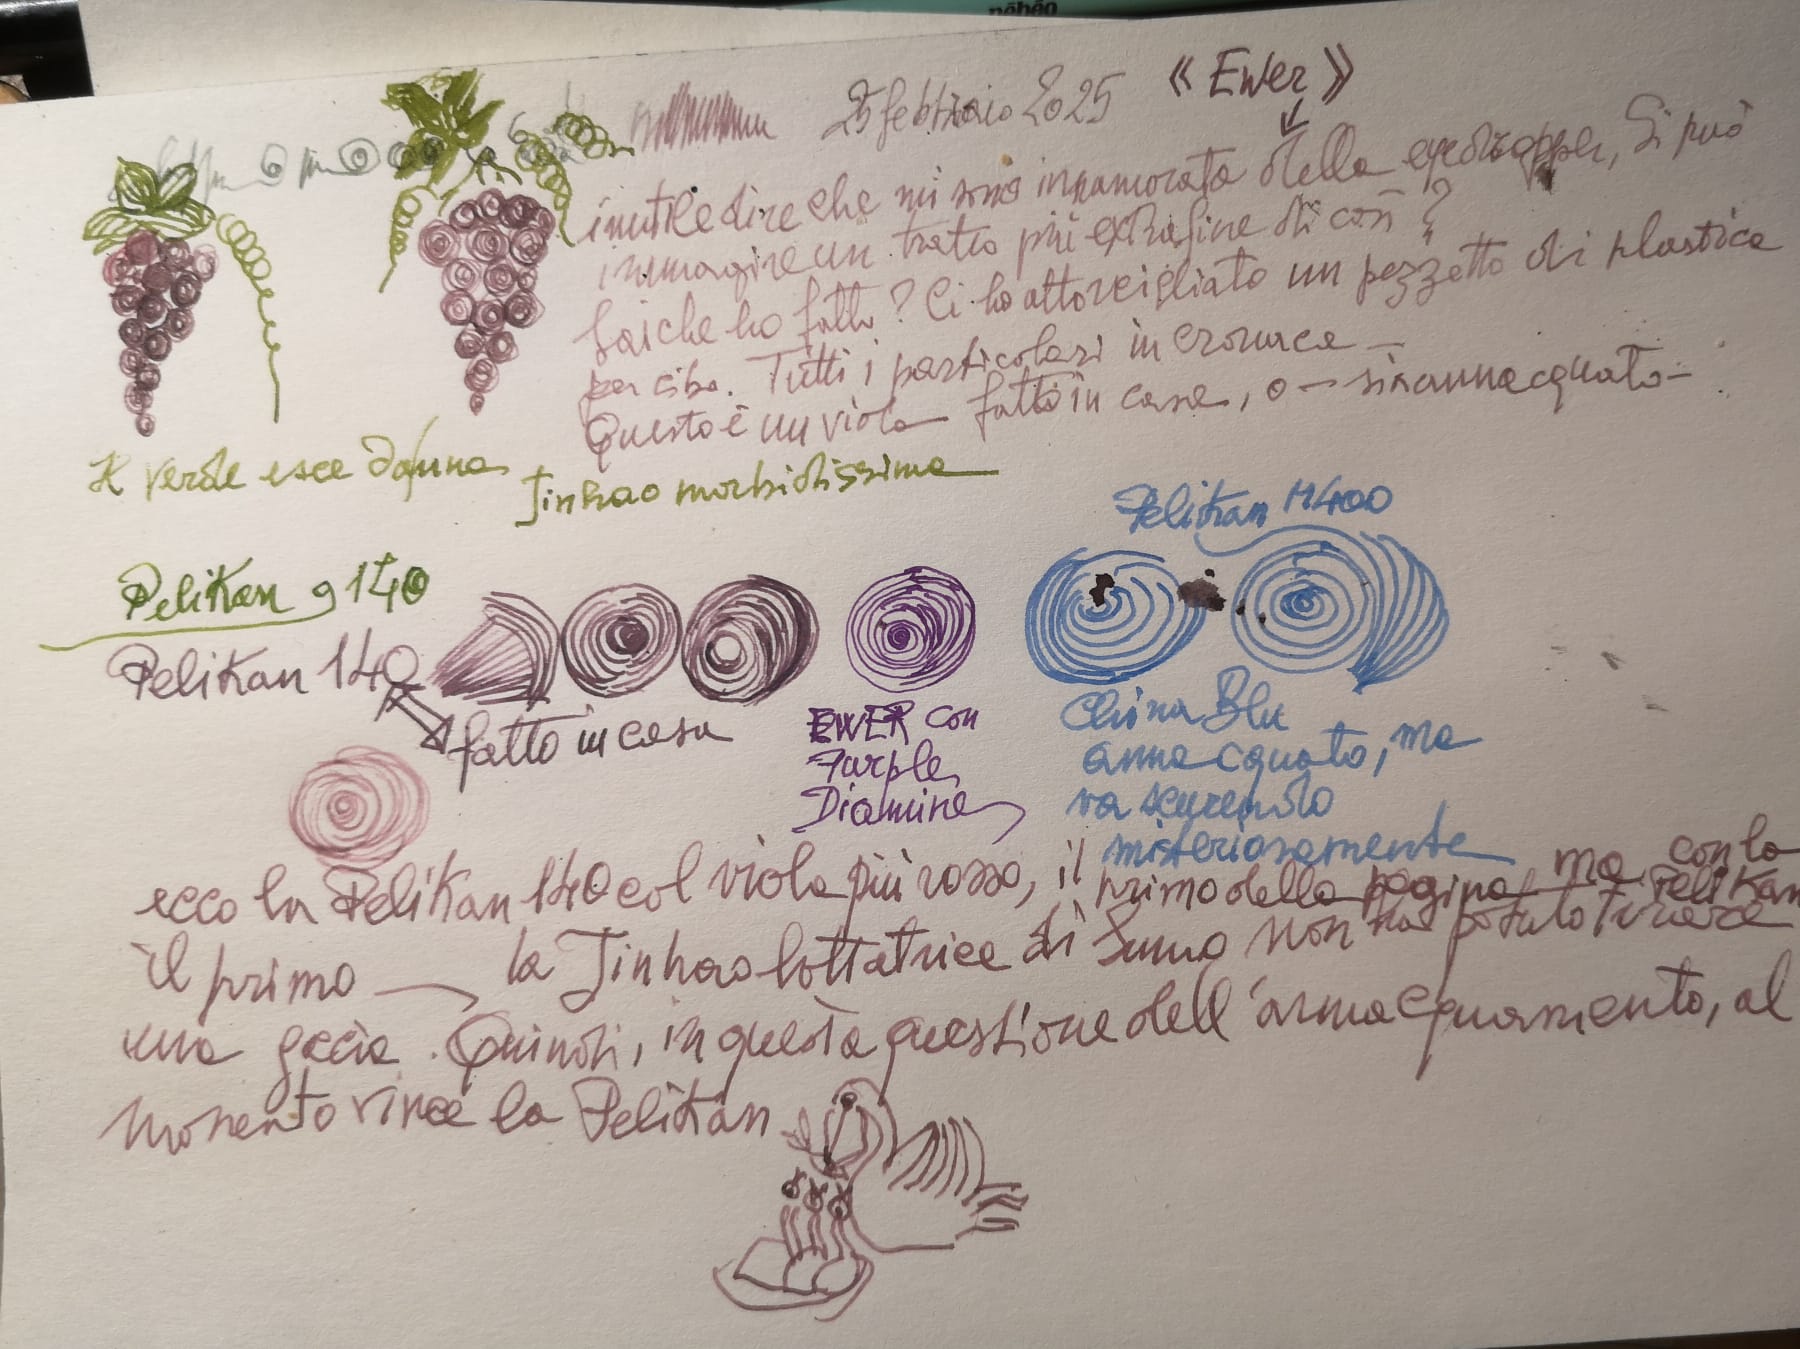 nēbēo
25 febbraio 2025 << Ewer >>
inutile dire che mi sono innamorata della eyedropper, Si può
immagine un tratto più extrafine di così?
Sai che ho fatto? Ci ho attorcigliato un pezzetto di plastica
per cibo. Tutti i particolari in cronaca —
Questo è un viola fatto in casa, o — sinannacquato —
Il verde esce da una
Jinhao morbidissima
Pelikan M400
Pelikan 140
Pelikan 140
fatto in casa
EWER con
Purple
Diamine
China Blu
annacquato, ma
va scurendo
misteriosamente
ecco la Pelikan 140 col viola più rosso, il primo della pagina ma con la Pelikan
il primo — la Jinhao lottatrice di Sumo non ha potuto tirare
una goccia. Quindi, in questa questione dell'annacquamento, al
momento vince la Pelikan